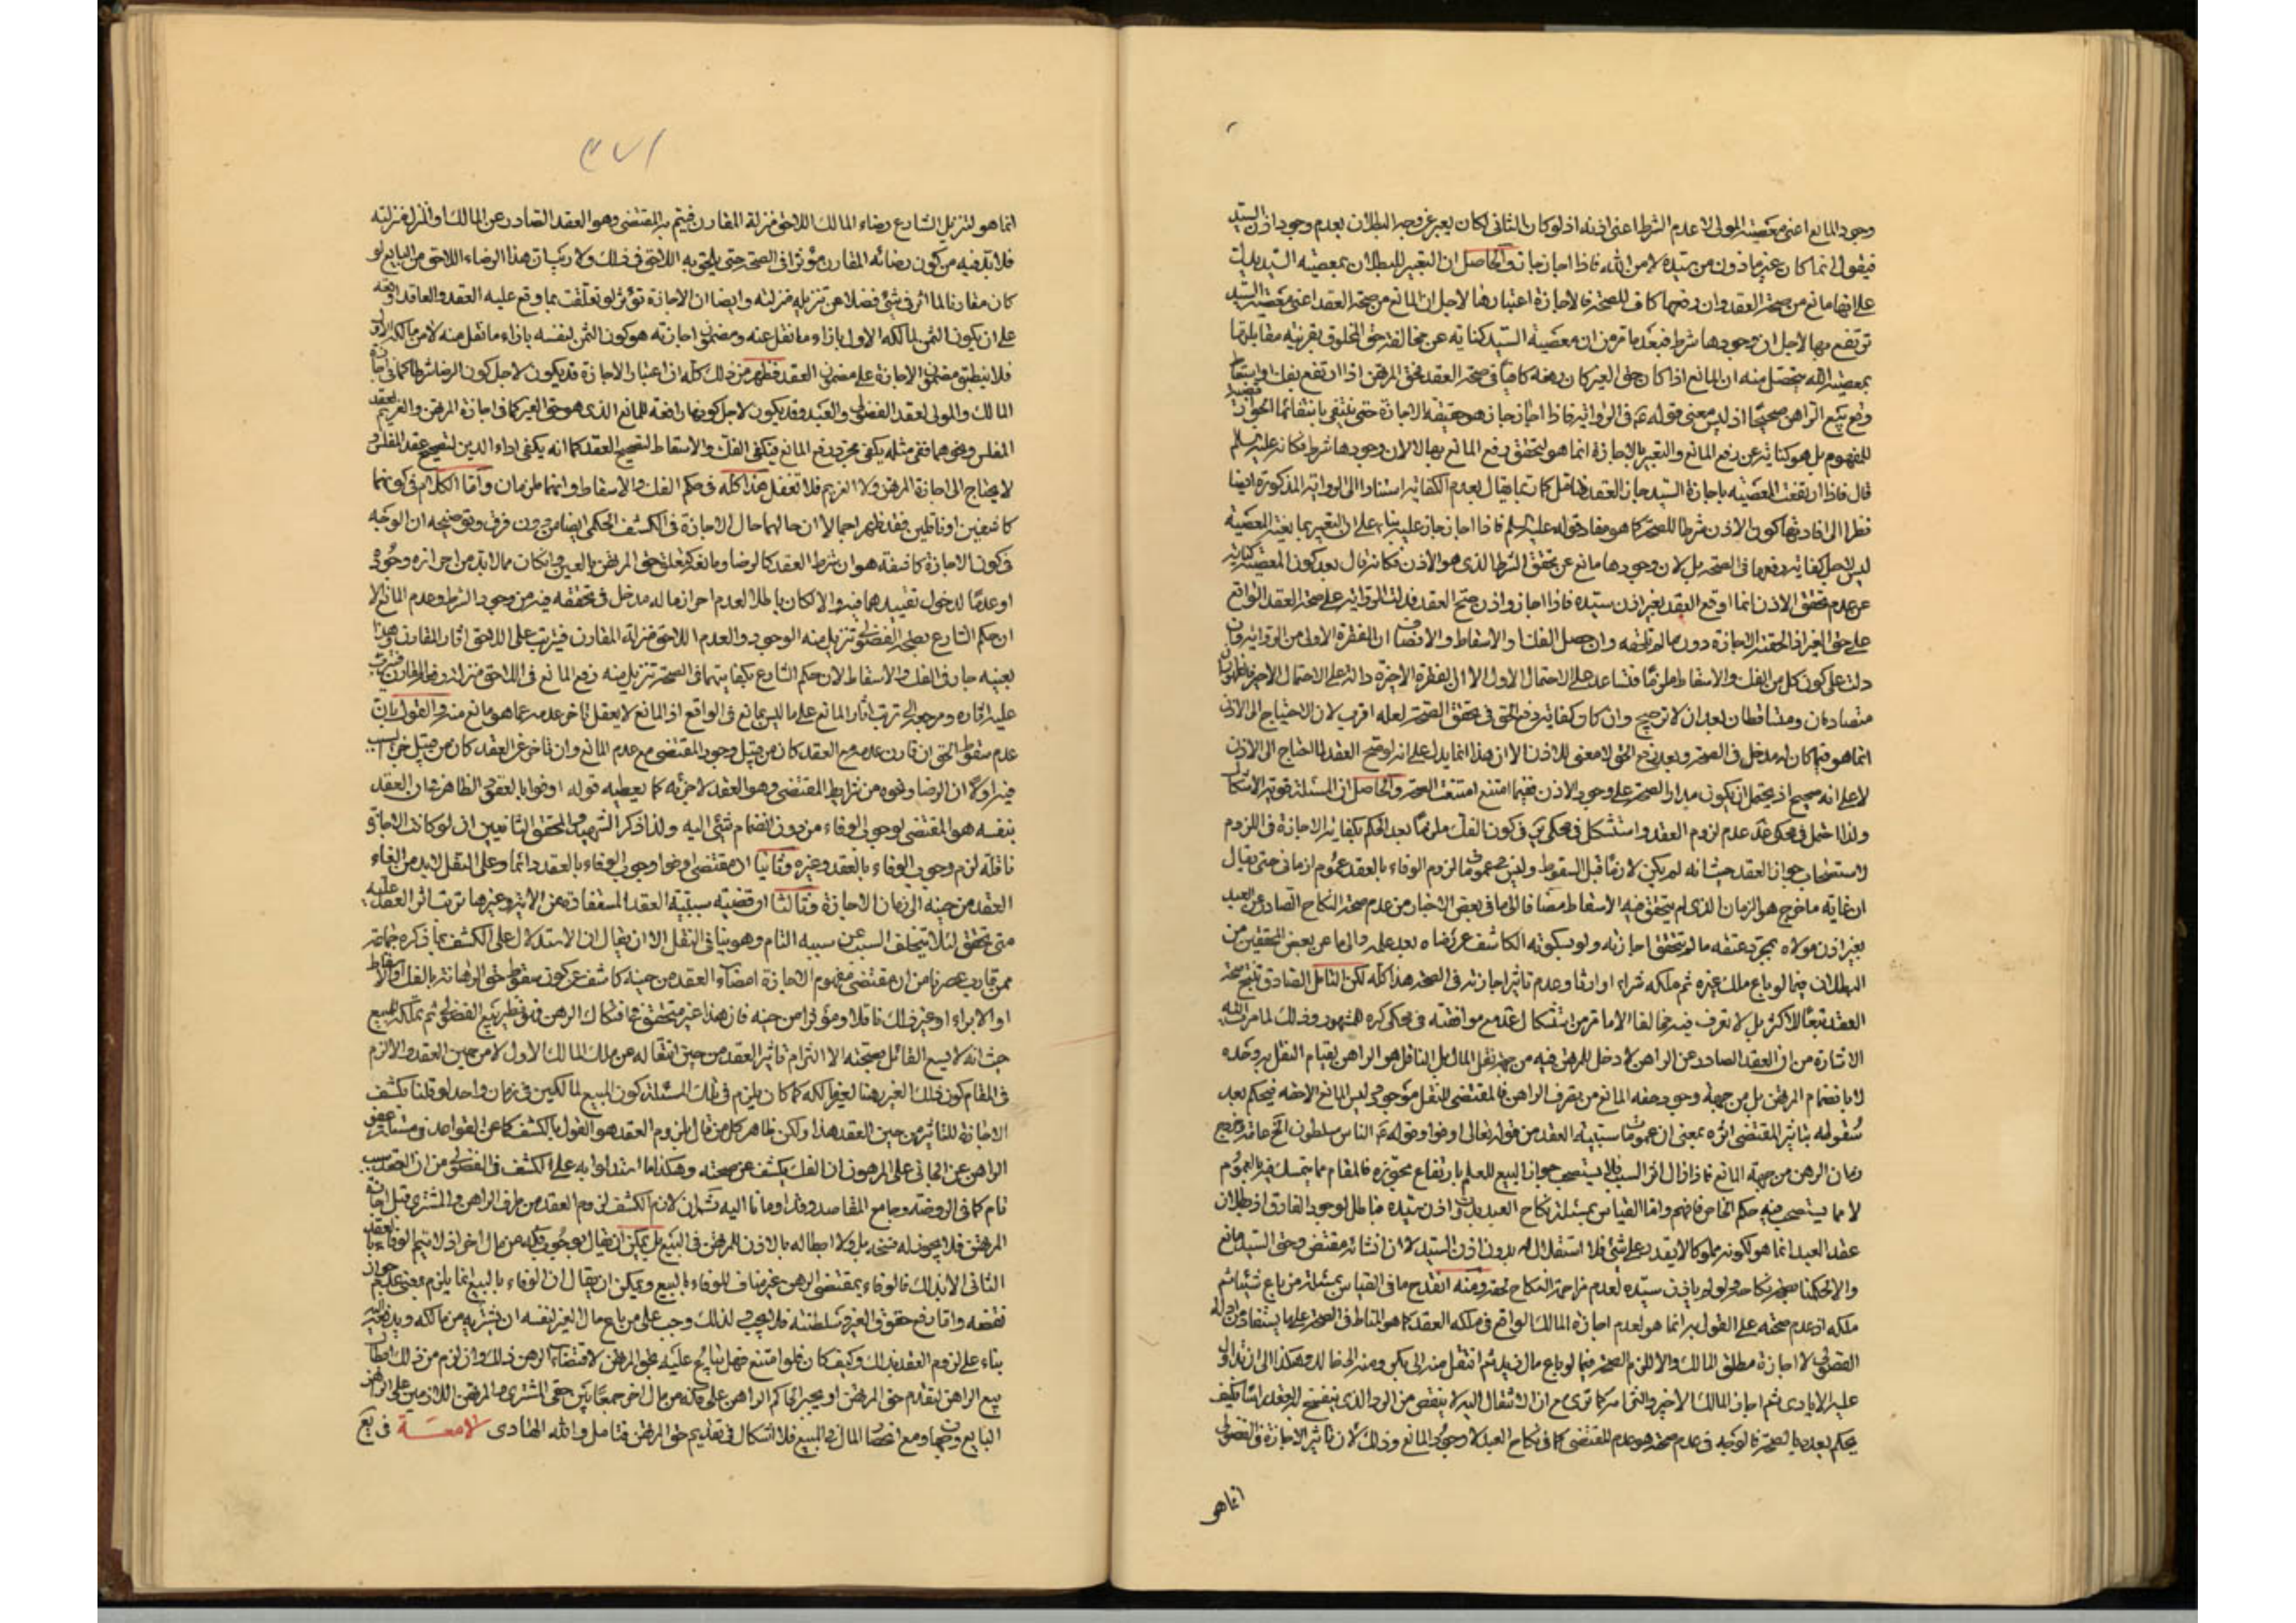 وجود المانع اعنى معصيته المولى لا عدم الشرط اعنى اذنه اذ لو كان الثانى لكان يعبر عن وجه البطلان بعدم وجود اذن السيد
فيقول انما كان غير ماذون من سيده لا من الله فاذا اجاز جاز والحاصل ان التعبير للبطلان بمعصيته السيد يدل
على انها مانع من صحة العقد وان رفعها كاف للصحة فالاجازة اعتبارها لاجل ان المانع من صحة العقد اعنى معصية السيد
ترتفع بها لاجل ان وجودها شرط فبعد ما تر من ان معصية السيد كناية عن مخالفة حق المخلوق بقرينة مقابلتها
بمعصية الله يتحصل منه ان المانع اذا كان حق الغير كان رفعه كافيا فى صحة العقد فحق المرتهن اذا ارتفع بفك او اسقاط
وقع بيع الراهن صحيحا اذ ليس معنى قوله ع فى الرواية فاذا اجاز جاز هو حقيقة الاجازة حتى ينتفى بانتفائها الجواز
للمفهوم بل هو كناية عن رفع المانع والتعبير بالاجازة انما هو لتحقق رفع المانع بها لا لان وجودها شرط فكانه عليه السلم
قال فاذا ارتفعت المعصية باجازة السيد جاز العقد فتامل كان ربما يقال بعدم الكفاية استنادا الى الرواية المذكورة ايضا
نظرا الى افادتها كون الاذن شرطا للصحة كما هو مفاد قوله عليه السلم فاذا اجاز جاز عليه بناء على ان التعبير بما يفيد المعصية
ليس لاجل كفاية رفعها فى الصحة بل لان وجودها مانع عن تحقق الشرط الذى هو الاذن فكانه قال بعد كون المعصية كناية
عن عدم تحقق الاذن انما اوقع العقد بغير اذن سيده فاذا اجاز واذن صح العقد فدلت الرواية على صحة العقد الواقع
على حق الغير اذا لحقته الاجازة دون ما لم تلحقه وان حصل الفك او الاسقاط والانصاف ان الفقرة الاولى من الرواية وان
دلت على كون كل من الفك والاسقاط ملزما فتساعد على الاحتمال الاول الا ان الفقرة الاخيرة دالة على الاحتمال الاخير
متصادمان ومتساقطان بعد ان لا ترجيح وان كان كفاية رفع الحق فى تحقق الصحة لعله اقرب لان الاحتياج الى الاذن
انما هو فيما كان له مدخل فى الصحة وبعد رفع الحق لا معنى للاذن الا ان هذا انما يدل على انه لو صح العقد لما احتاج الى الاذن
لا على انه صحيح اذ يحتمل ان يكون مدار الصحة على وجود الاذن فمتى امتنع امتنعت الصحة والحاصل ان المسئلة قوية الاشكال
ولذا احتمل فى محكى عد عدم لزوم العقد واستشكل فى محكى ير فى كون الفك ملزما بعد الحكم بكفاية الاجازة فى اللزوم
لاستصحاب جواز العقد حيث انه لم يكن لازما قبل السقوط وليس عموم لزوم الوفاء بالعقد عموم ازمانى حتى يقال
ان غاية ما خرج هو الزمان الذى لم يتحقق فيه الاسقاط مضافا الى ما فى بعض الاخبار من عدم صحة النكاح الصادر عن العبد
بغير اذن مولاه بمجرد عتقه ما لم تتحقق اجازته ولو بسكوته الكاشف عن رضاه بعد علمه والى ما عن بعض المحققين من
البطلان فيما لو باع ملك غيره ثم ملكه شراء او ارثا وعدم تاثير اجازته فى الصحة هذا كله لكن التامل الصادق ينتج صحة
العقد تبعا للاكثر بل لا نعرف فيه مخالفا الا ما تر من استشكال عد مع موافقته فى محكى كره للمشهور وذلك لما مرت اليه
الاشارة من ان العقد الصادر عن الراهن لا دخل للمرتهن فيه من جهة نقل المال بل الناقل هو الراهن لقيام النقل به وحده
لا بانضمام المرتهن بل من جهة وجود حقه المانع من تصرف الراهن فالمقتضى للنقل موجود وليس المانع الا حقه فيحكم بعد
سقوطه بتاثير المقتضى اثره بمعنى ان عمومات سببية العقد من قوله تعالى اوفوا وقوله ع الناس مسلطون الخ عامة خرج
زمان الرهن من جهة المانع فاذا زال اثر السبب فلا يستصحب جواز البيع للعلم بارتفاع مجوزه فالمقام مما يتمسك فيه بالعموم
لا مما يستصحب فيه حكم الخاص فافهم واما القياس بمسئلة نكاح العبد بدون اذن سيده فباطل لوجود الفارق اذ بطلان
عقد العبد انما هو لكونه مملوكا لا يقدر على شئ فلا استقلال له بدون اذن السيد لا ان انشائه مقتض وحق السيد مانع
والا لحكمنا بصحة نكاحه ولو لم ياذن سيده لعدم مزاحمة النكاح لحقه ومنه انقدح ما فى القياس بمسئلة من باع شيئا ثم
ملكه اذ عدم صحته على القول به انما هو لعدم اجازة المالك الواقع فى ملكه العقد كما هو المناط فى الصحة على ما يستفاد من ادلة
الفضولى لا اجازة مطلق المالك والا للزم الصحة فيما لو باع مال زيد ثم انتقل منه الى بكر ومنه الى خالد وهكذا الى ان تداول
عليه الايادى ثم اجاز المالك الاخير والتمامية كما ترى مع ان الانتقال اليه لا ينقص من الرد الذى ينفسخ به العقد انشا فكيف
يحكم بعده بالصحة فالوجه فى عدم صحته هو عدم المقتضى كما فى نكاح العبد لا وجود المانع وذلك لان تاثير الاجازة فى الفضولى
انما هو
٣٧١
انما هو لتنزيل الشارع رضاء المالك اللاحق منزلة المقارن فيتم به المقتضى وهو العقد الصادر عن المالك او المنزل منزلته
فلا بد فيه من كون رضائه المقارن مؤثرا فى الصحة حتى يلحق به اللاحق فى ذلك ولا ريب ان هذا الرضاء اللاحق من البايع لو
كان مقارنا لما اثر فى شئ فضلا عن تنزيله منزلته وايضا ان الاجازة تؤثر لو تعلقت بما وقع عليه العقد والعاقد اوقعه
على ان يكون الثمن لمالكه الاول بازاء ما نقل عنه ومضمون اجازته هو كون الثمن لنفسه بازاء ما نقل منه لا من مالكه الاول
فلا ينطبق مضمون الاجازة على مضمون العقد فظهر من ذلك كله ان اعتبار الاجازة قد يكون لاجل كون الرضا شرطا كما فى اجازة
المالك والمولى لعقد الفضولى والعبد وقد يكون لاجل كونها رافعة للمانع الذى هو حق الغير كما فى اجازة المرتهن والغريم لعقد
المفلس ونحوهما ففى مثله يكفى مجرد رفع المانع فيكفى الفك والاسقاط لتصحيح العقد كما انه يكفى اداء الدين لتصحيح عقد المفلس و
لا يحتاج الى اجازة المرتهن ولا الغريم فلا تغفل هذا كله فى حكم الفك والاسقاط وانهما ملزمان واما الكلام فى كونهما
كاشفين او ناقلين فقد ظهر اجمالا ان حالهما حال الاجازة فى الكشف الحكمى ايضا من دون فرق وتوضيحه ان الوجه
فى كون الاجازة كاشفة هو ان شرط العقد كالرضا ومانعه كتعلق حق المرتهن بالعين وان كان مما لا بد من احرازه وجودا
او عدما لدخول تقييدهما فيه والا لكان باطلا لعدم احراز ما له مدخل فى تحققه فيه من وجود الشرط وعدم المانع الا
ان حكم الشارع بصحة الفضولى تنزيل منه الوجود والعدم اللاحق منزلة المقارن فيترتب على اللاحق اثار المقارن وهذا
بعينه جار فى الفك والاسقاط لان حكم الشارع بكفايتهما فى الصحة تنزيل منه رفع المانع فى اللاحق منزلة رفعه المقارن فيترتب
عليه اثاره ومرجعه الى ترتب اثار المانع على ما ليس بمانع فى الواقع اذ المانع لا يعقل تاخر عدمه عما هو مانع منه والقول بان
عدم سقوط الحق ان قارن عدمه مع العقد كان من قبيل وجود المقتضى مع عدم المانع وان تاخر عن العقد كان من قبيل جزء السبب
فيه اولا ان الرضا ونحوه من شرايط المقتضى وهو العقد لا جزئه كما يعطيه قوله اوفوا بالعقود الظاهر فى ان العقد
بنفسه هو المقتضى لوجوب الوفاء من دون انضمام شئ اليه ولذا ذكر الشهيد والمحقق الثانيين انه لو كانت الاجازة
ناقلة لزم وجوب الوفاء بالعقد وغيره وثانيا ان مقتضى اوفوا وجوب الوفاء بالعقد دائما وعلى النقل لا بد من الغاء
العقد من حينه الى زمان الاجازة وثالثا ان قضية سببية العقد المستفادة من الاية وغيرها ترتب اثر العقد عليه
متى تحقق لئلا يتخلف السبب عن سببه التام وهو ينافى النقل الا ان يقال ان الاستدلال على الكشف بما ذكره جماعة
ممن قارب عصرنا من ان مقتضى مفهوم الاجازة امضاء العقد من حينه كاشف عن كون سقوط حق الرهانة بالفك او الاسقاط
او الابراء او غير ذلك ناقلا ومؤثرا من حينه فان هذا غير متحقق فى افتكاك الرهن فهو نظير بيع الفضولى ثم تملكه للمبيع
حيث انه لا يسع القائل بصحته الا التزام تاثير العقد من حين انتقاله عن ملك المالك الاول لا من حين العقد والا لزم
فى المقام كون ذلك الغير رهنا لغير مالكه كما كان يلزم فى تلك المسئلة كون المبيع لمالكين فى زمان واحد لو قلنا بكشف
الاجازة للتاثير من حين العقد هذا ولكن ظاهر كل من قال بلزوم العقد هو القول بالكشف كما عن القواعد فى مسئلة عفو
الراهن عن الجانى على المرهون ان الفك يكشف عن صحته وهكذا ما استدلوا به على الكشف فى الفضولى من ان العقد سبب
تام كما فى الروضة وجامع المقاصد وقد اومانا اليه ثم ان لازم الكشف لزوم العقد من طرف الراهن والمشترى قبل اجازة
المرتهن فلا يجوز له فسخه بل ولا ابطاله بالاذن للمرتهن فى البيع بل يمكن ان يقال بوجوب فكه من مال اخر اذ لا يتم الوفاء بالعقد
الثانى الا بذلك فالوفاء بمقتضى الرهن غير مناف للوفاء بالبيع ويمكن ان يقال ان الوفاء بالبيع انما يلزم بمعنى عدم جواز
نقضه واما رفع حقوق الغير وسلطنته فلا يجب ولذلك وجب على من باع مال الغير لنفسه ان يشتريه من مالكه ويدفعه اليه
بناء على لزوم العقد بذلك وكيف كان فلو امتنع فهل يباع عليه بحق المرتهن لاقتضاء الرهن ذلك وان لزم من ذلك ابطال
بيع الراهن لتقدم حق المرتهن او يجبر الحاكم الراهن على فكه من مال اخر جمعا بين حقى المشترى والمرتهن اللازمين على الراهن
البايع وجهان ومع انحصار المال فى المبيع فلا اشكال فى تقديم حق المرتهن فتامل والله الهادى لامعـة فى بيع